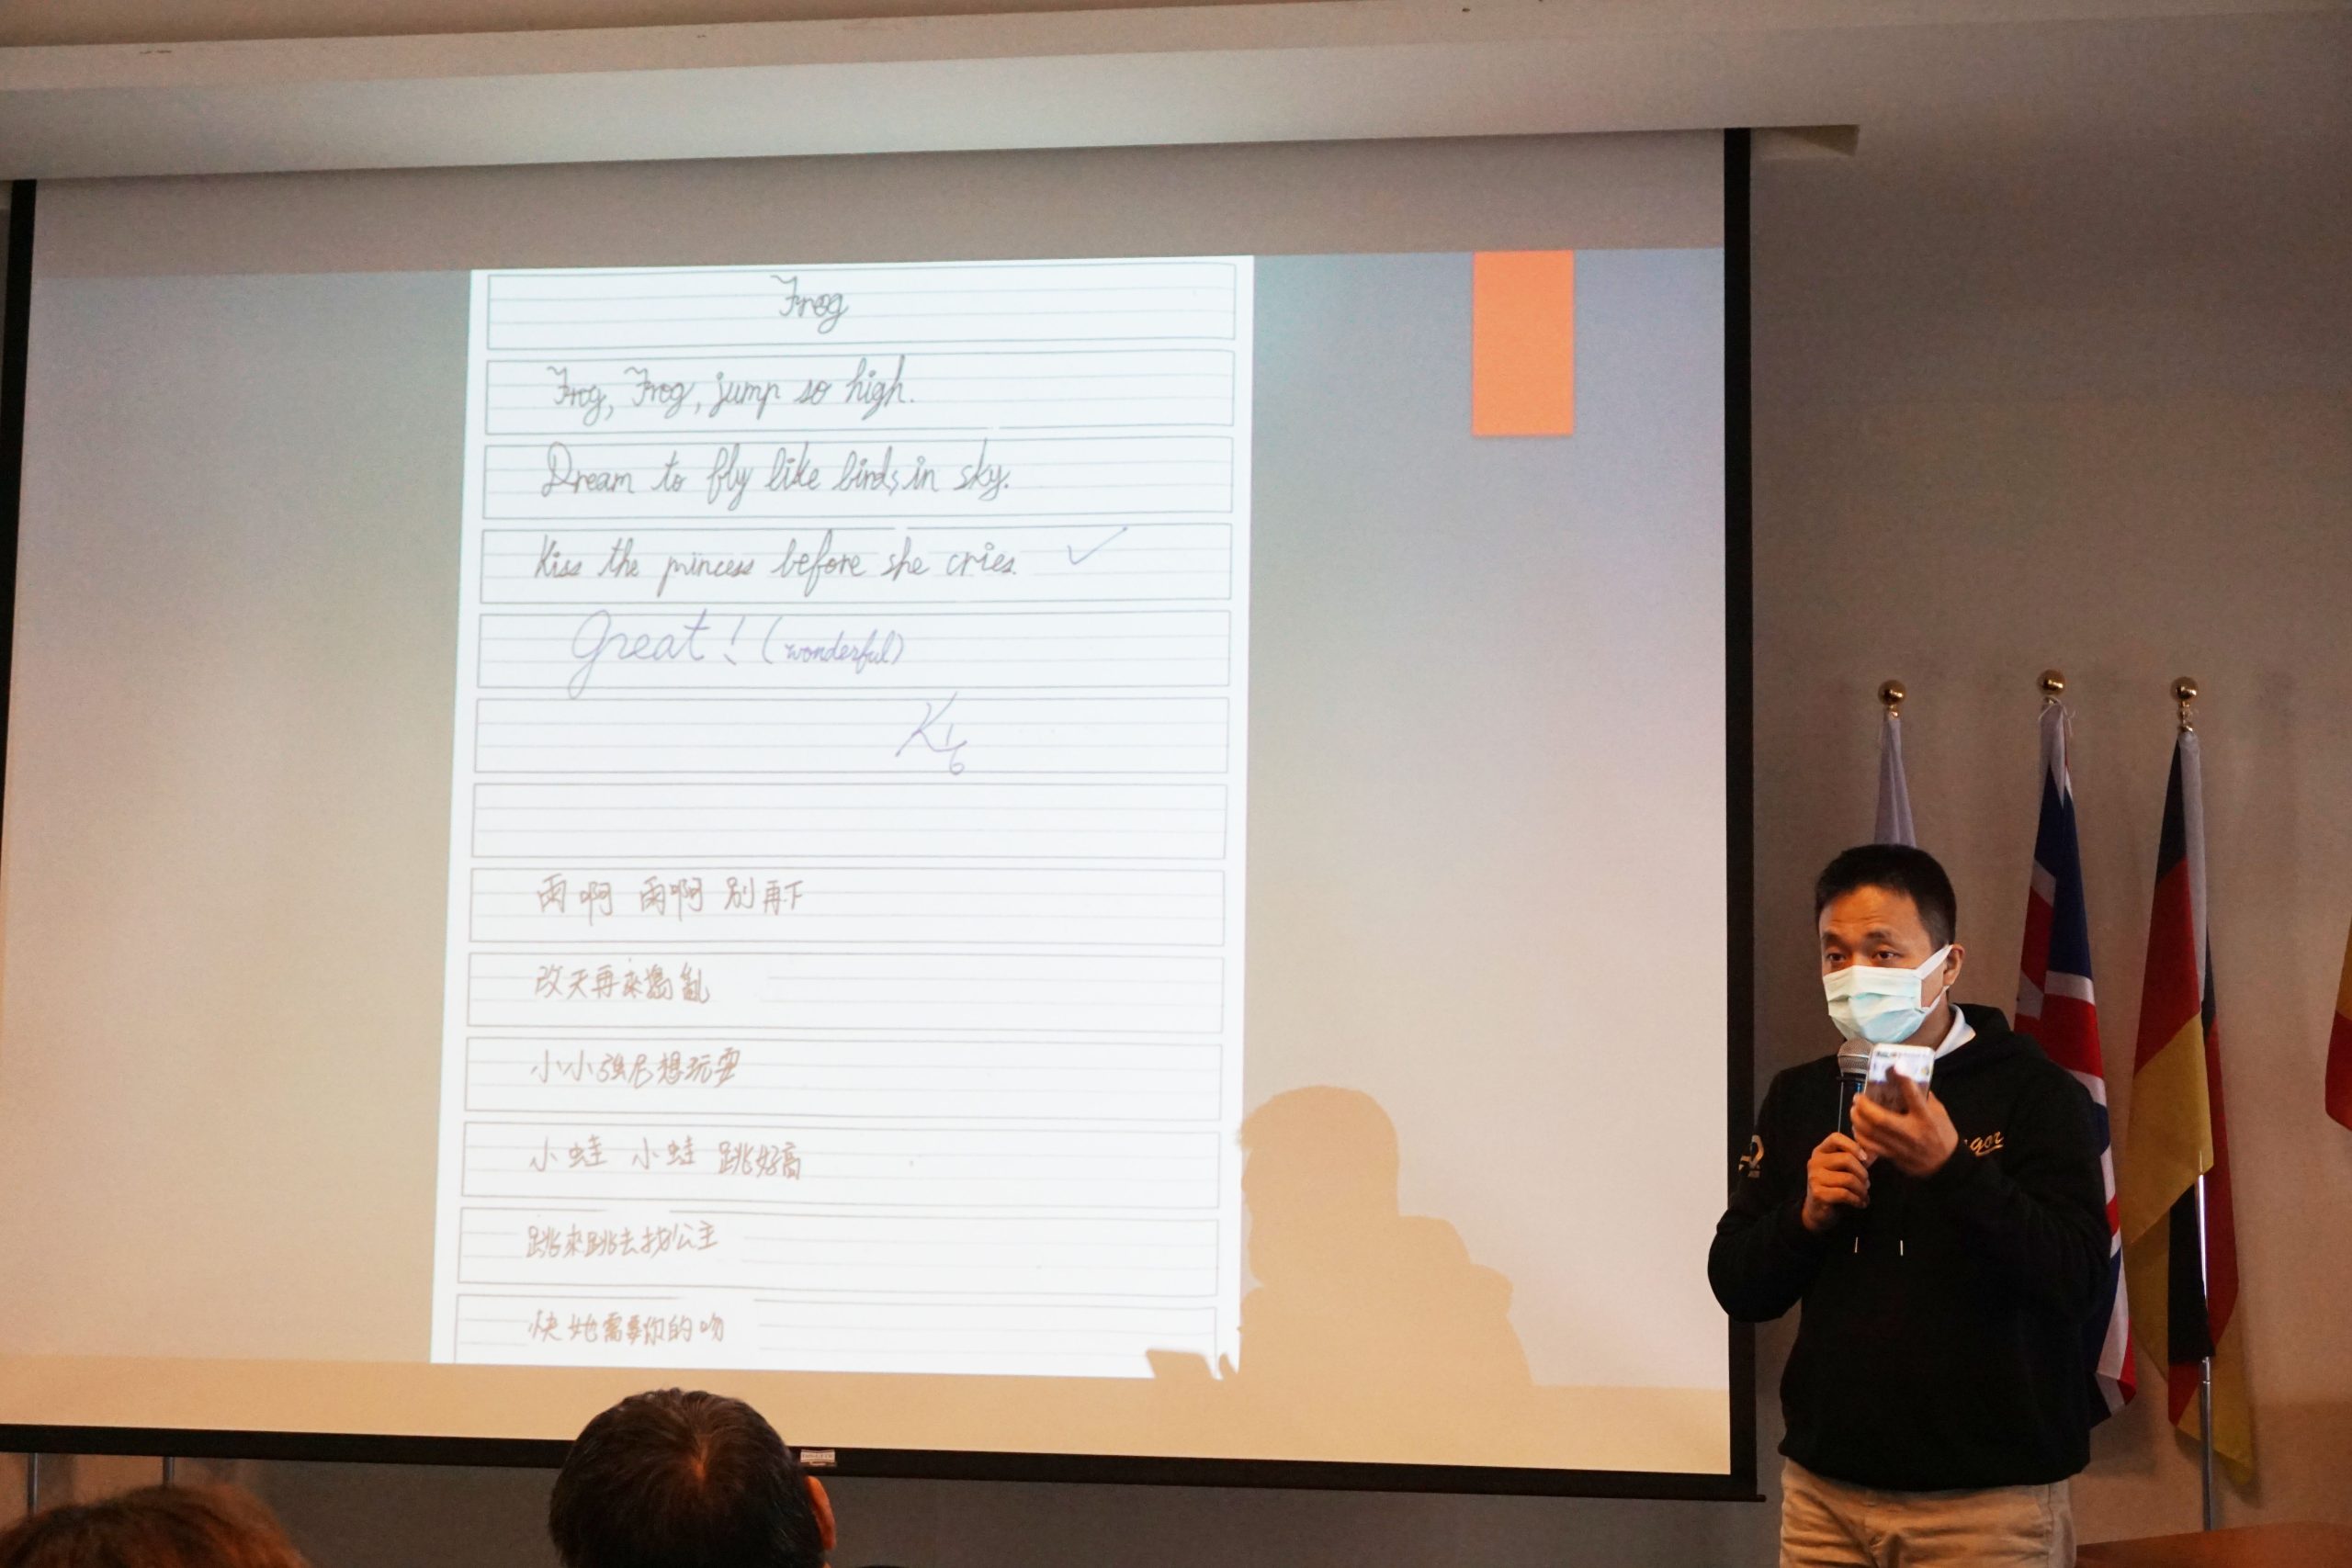 Frog
Frog, Frog, jump so high.
Dream to fly like birds in sky.
Kiss the princess before she cries.
Great! (wonderful)
K 1/6
雨啊 雨啊 別再下
改天再來搗亂
小小強尼想玩耍
小蛙 小蛙 跳好高
跳來跳去找公主
快她需要你的吻